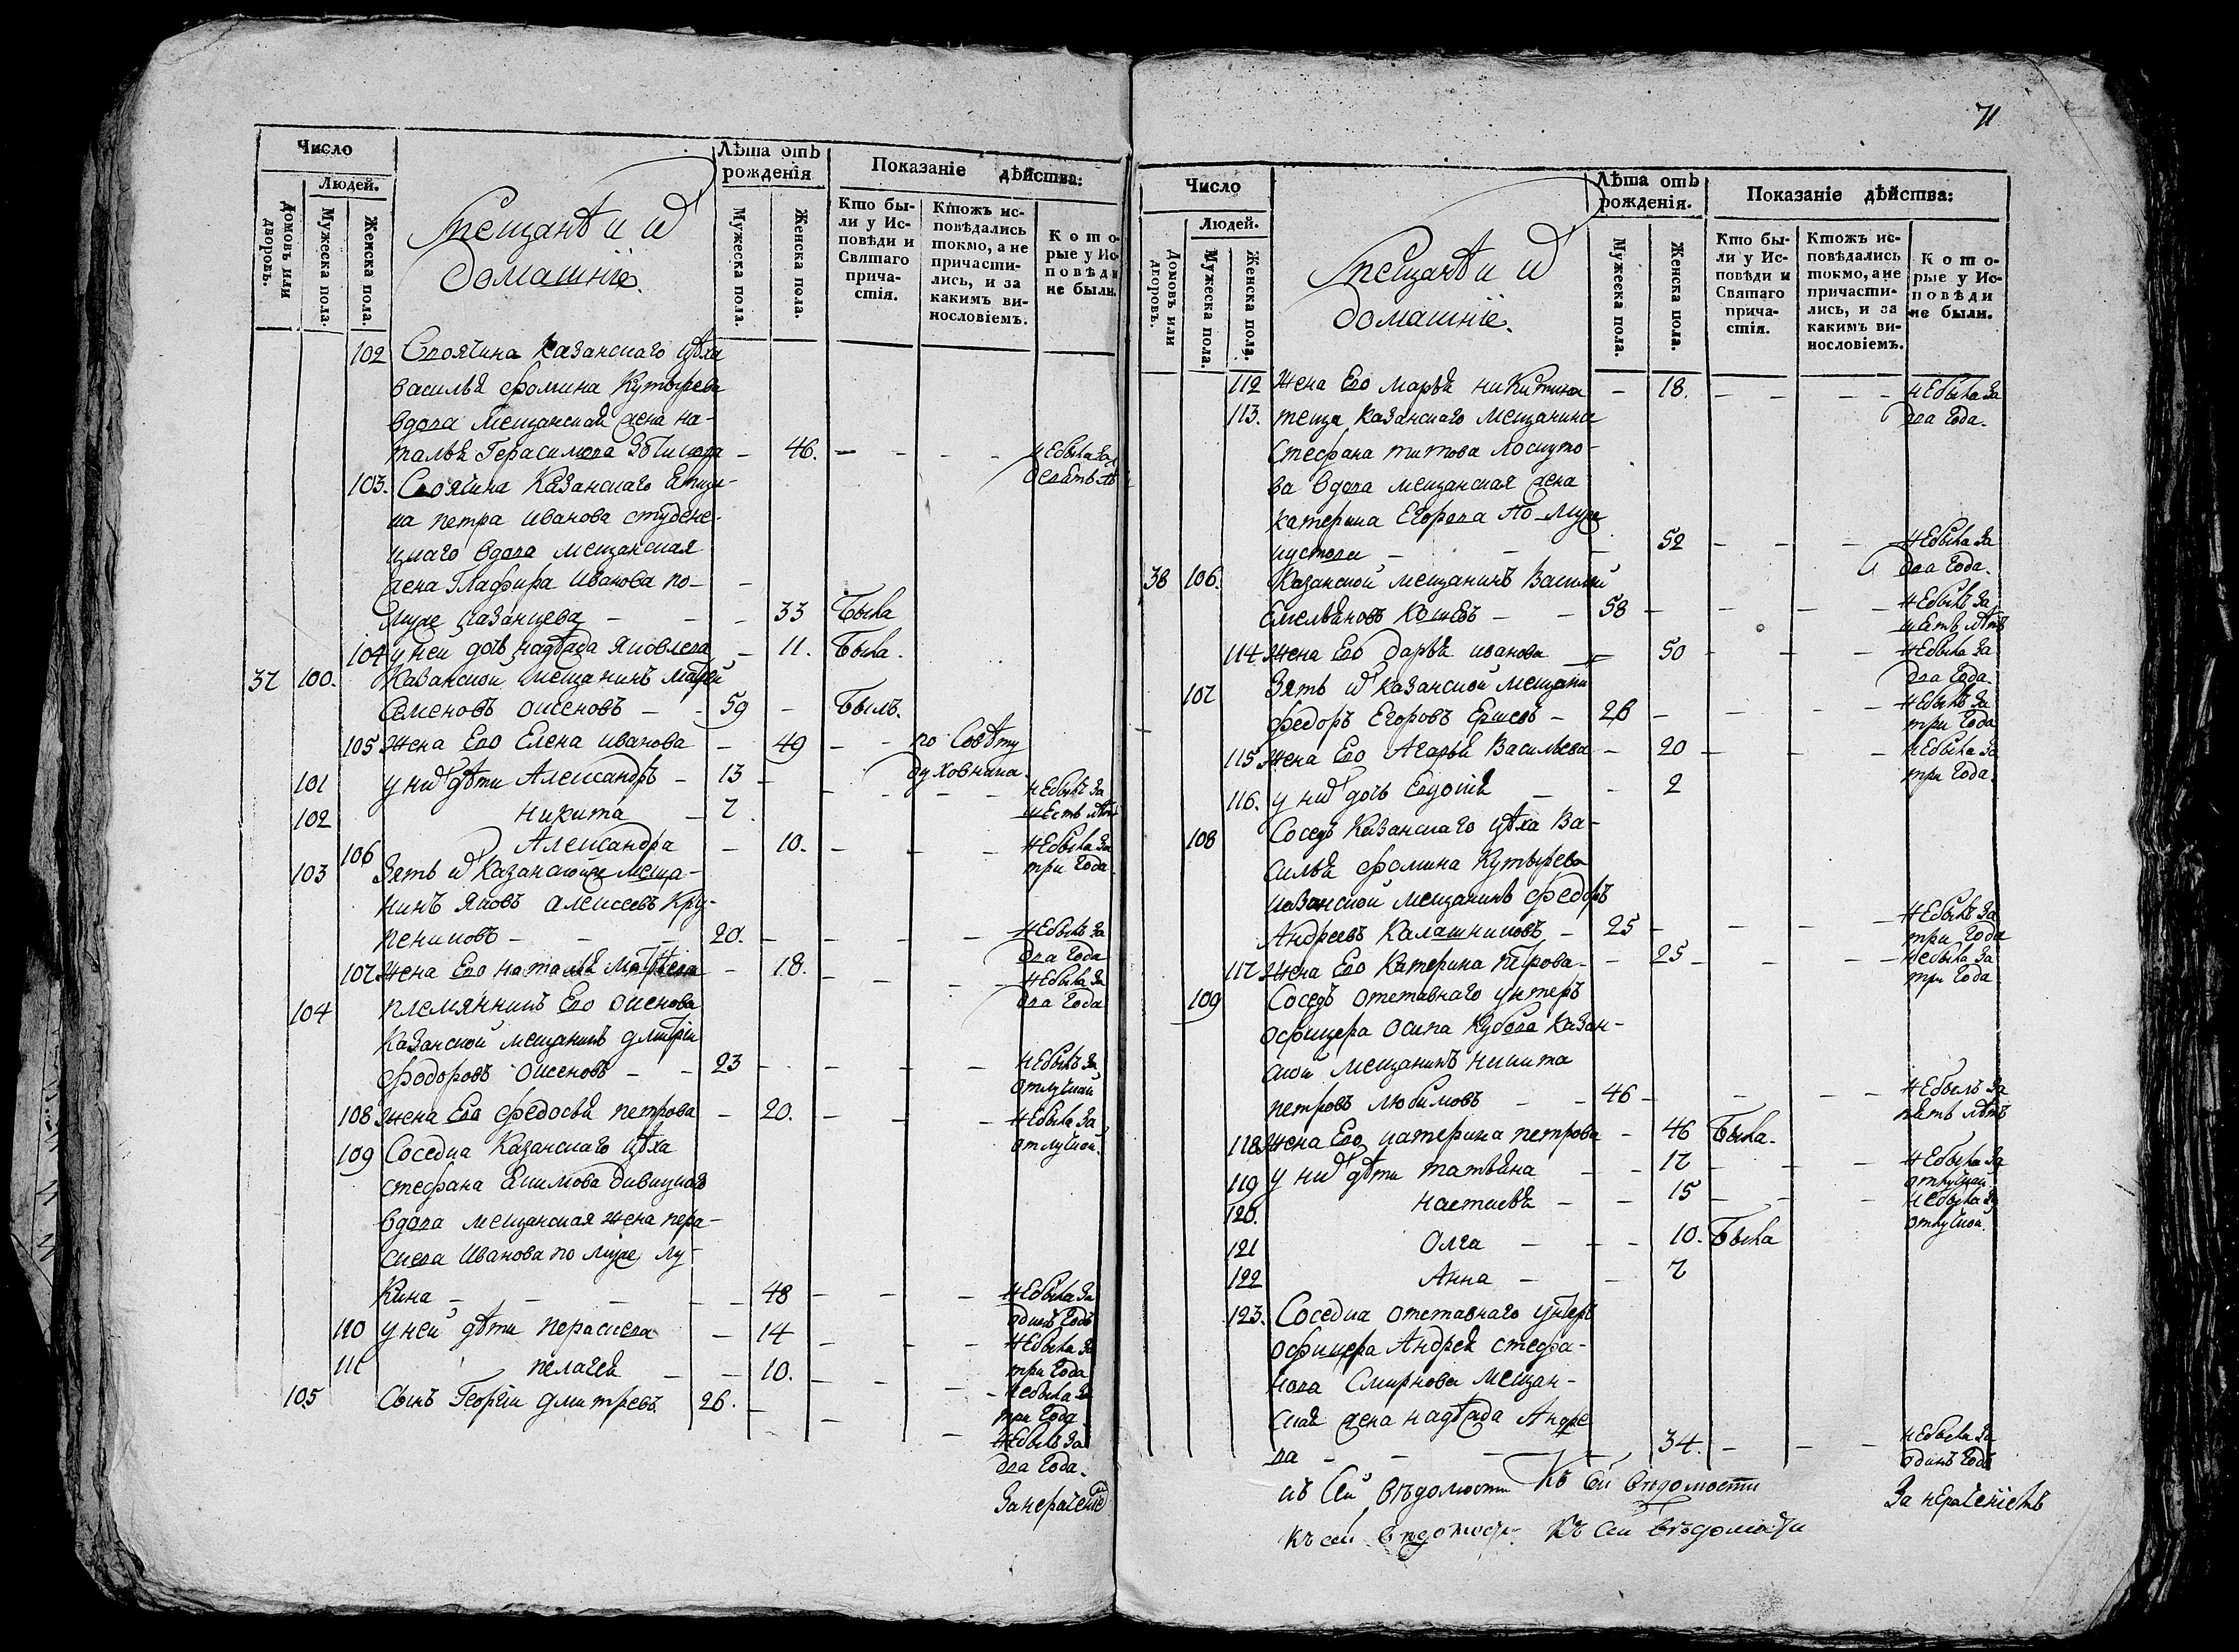 Число
Людей.
Домовъ или дворовъ.
Мужеска пола.
Женска пола.
Мещанѣ и и̾х
домашніе.
Лѣта отъ рожденія
Мужеска пола.
Женска пола.
Показаніе дѣйства:
Кто бы-
ли у Ис-
повѣди и
Святаго
прича-
стія.
Ктожъ ис-
повѣдались
токмо, а не
причасти-
лись, и за
какимъ ви-
нословіемъ.
Кото-
рые у Ис-
повѣди
не были.
102 Стоячина Казанскаго цѣха
василья Фомина Кутырева
вдова мещанская жена на-
талья Герасимова - 46. - - - - небыла за
103. Казанскаго
ца петра иванова студене-
цкаго вдова мещанская
жена Глафира иванова по-
муже казанцева - - - 33 Была
104 у ней дочь надѣжда яковлева - 11. Была.
37 100. Казанской мещанинъ матфей
Семеновъ оксеновъ - - 59 - Былъ.
105 жена Его Елена иванова - 49 - - по совѣту
духовника.
101 у них дѣти Александръ - 13 - - - - небылъ за
шесть лѣтъ
102 никита - 7
106 Александра - 10. - - - небыла за
три года.
103 Зять их Казанской меща-
нинъ яковъ алексеевъ Кру-
пениковъ - - - 20. - - - - небылъ за
два года
107 жена Его наталья матфеева - 18. - - - небыла за
два года
104 племянникъ Его оксенова
Казанской мещанинъ дмитрій
Федоровъ оксеновъ - - 23 - - - - небылъ за
отлучкой
108 жена Его федосья петрова - 20. - - - небыла за
отлучкой.
109 Соседка Казанскаго цѣха
стефана
вдова мещанская жена пера-
скева иванова по муже лу-
кина - - - - - 48 - - - небыла за
одинъ годъ
110 у ней дѣти пераскева - 14 - - - небыла за
три года
111 пелагея - - 10. - - - небыла за
три года
105 Сынъ Георгій дмитревъ 26. - - - небылъ за
два года.
За нераченіе
71
Число
Людей.
Домовъ или дворовъ.
Мужеска пола.
Женска пола.
Мещанѣ и и̾х
домашніе.
Лѣта отъ рожденія.
Мужеска пола.
Женска пола.
Показаніе дѣйства:
Кто бы-
ли у Ис-
повѣди и
Святаго
прича-
стія.
Ктожъ ис-
повѣдались
токмо, а не
причасти-
лись, и за
какимъ ви-
нословіемъ.
Кото-
рые у Ис-
повѣди
не были.
112 жена Его марья никитина - 18. - - - - небыла за
два года.
113. теща казанскаго мещанина
Стефана титова лоскуто-
ва вдова мещанская жена
катерина Егорова по муже
- - - 52 - - - небыла за
два года.
38 106. Казанской мещанинъ Василій
Емельяновъ - - 58 - - - - небылъ за
шеть лѣтъ
114 жена Его дарья иванова - 50 - - - небыла за
два года.
107 Зять их казанской мещанин
федоръ Егоровъ Ершевъ - 26 - - - - небылъ за
три года
115 жена Его Агафья Васильева - 20 - - - небыла за
три года.
116. у них дочь Евдокія - - 2
108 Соседъ Казанскаго цѣха Ва-
силья фомина Кутырева
казанской мещанинъ федоръ
Андреевъ Калашниковъ - 25 - - - небылъ за
три года
117 жена Его Катерина петрова - - 25 - - - небыла за
три года
109 Соседъ отставнаго унтеръ
офицера осипа Казан-
ской мещанинъ никита
петровъ любимовъ - - 46 - - - небылъ за
пять лѣтъ
118 жена Его катерина петрова - 46 Была.
119 у них дѣти татьяна - - 17 - - - небыла за
отлучкой
120. настасья - - 15 - - - небыла за
отлучкой.
121 Олга - - - 10. Была
122 Анна - - 7
123. Соседка отставнаго унтеръ
офицера Андрея стефа-
нова Смирнова мещан-
ская жена надѣжда Андре
ва - - - - 34. - - - небыла за
одинъ годъ
За нераченіемъ
къ сей вѣдомости Къ сей вѣдомости
Къ сей Къ сей вѣдомости